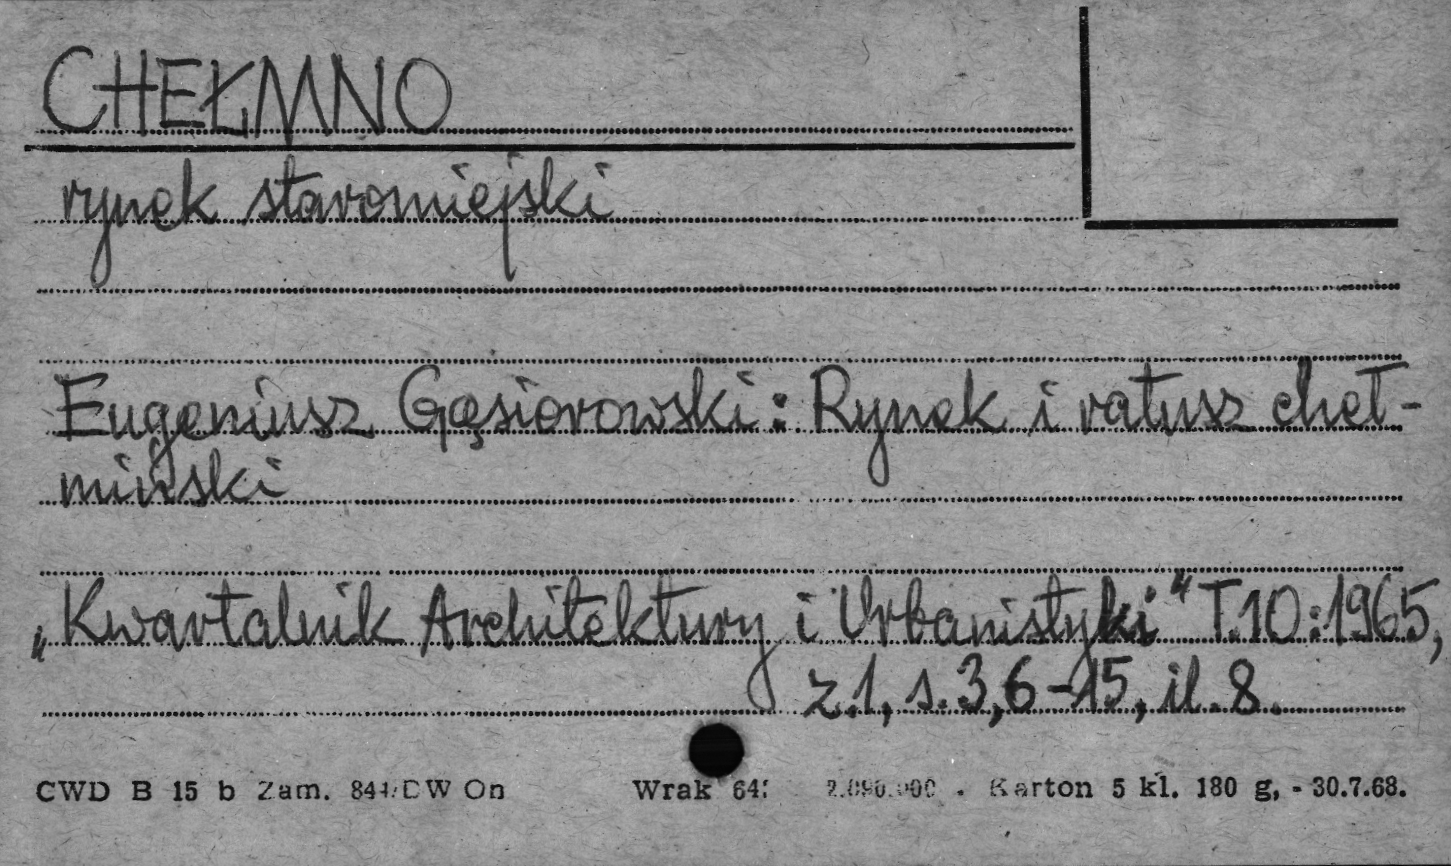 CHEŁMNO
rynek staromiejski
Eugeniusz Gąsiorowski: Rynek i ratusz cheł-
miński
„Kwartalnik Architektury i Urbanistyki" T.10:1965,
z.1, s.3,6-15, il.8.
CWD B 15 b Zam. DW On Wrak Karton 5 kl. 180 g, - 30.7.68.